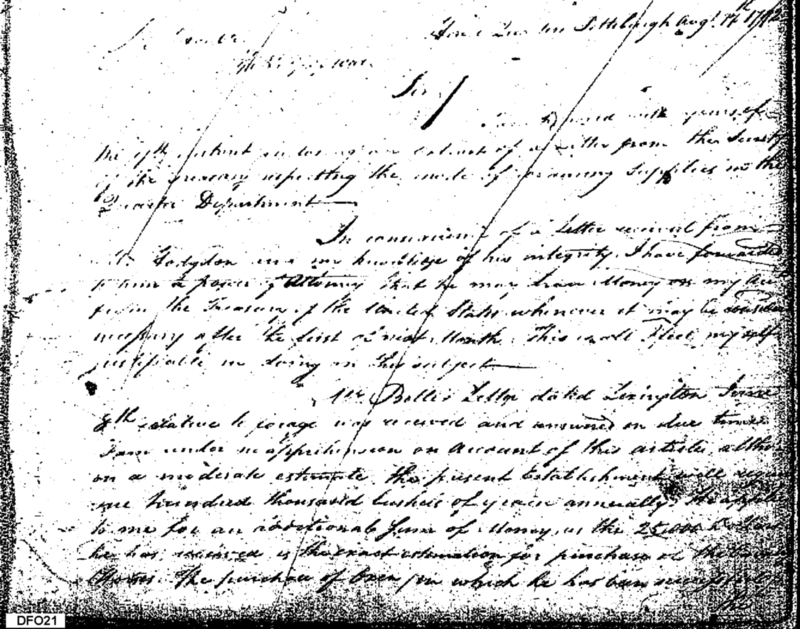 Pittsburgh Augt. 17th 1792
Sir/
with yourself
the 9th instant inclosing an extract of a letter from the Secrety
of the treasury respecting the mode of obtaining supplies in the
Quarter Department
In consequence of a Letter received from
Mr. Hodgdon and my knowledge of his integrity, I have forwarded
to him a power of Attorney that he may draw Money on my
from the Treasury of the United States whenever it may be
necessary after the first of next Month. This is all I feel myself
justifiable in doing on this subject
Mr. Belli's Letter dated Lexington June
8th relative to forage was received and answered in due time
I am under no apprehension on Account of this article, altho
on a moderate estimate the present Establishment will
one hundred thousand bushels of grain annually. He applies
to me for an additional Sum of Money, as the 25,000
he has received is the exact estimation for purchase of the
Horses. The purchase of Oxen, in which he has been
the
DFO21